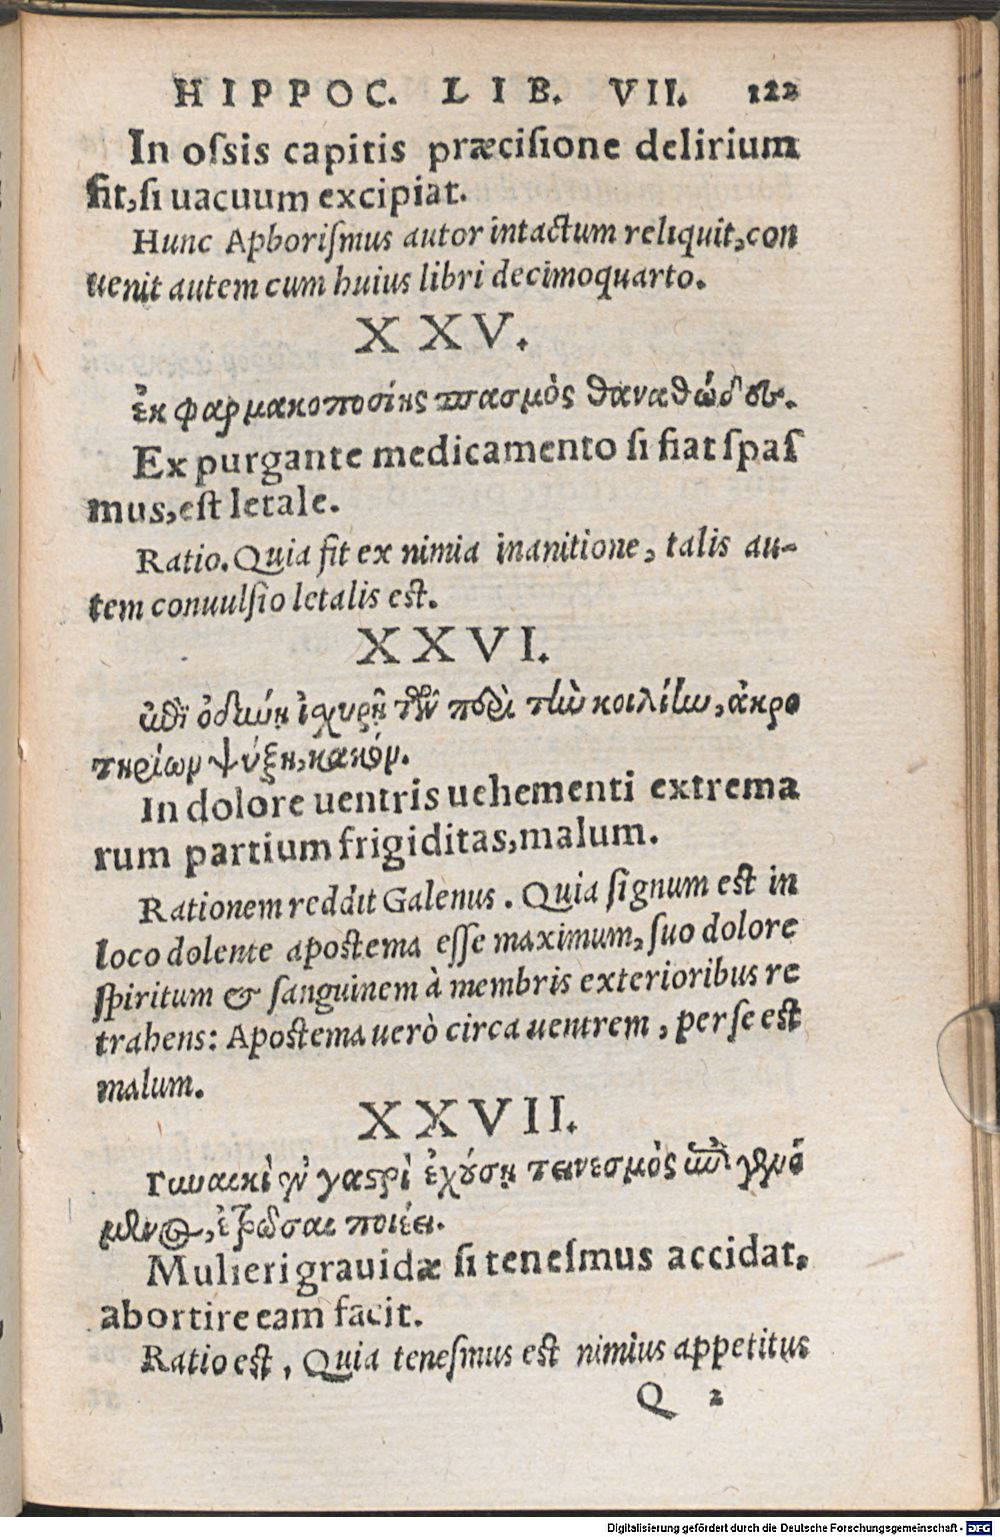 HIPPOC. LIB. VII. 122
In ossis capitis præcisione delirium
fit, si uacuum excipiat.
Hunc Aphorismus autor intactum reliquit, con
uenit autem cum huius libri decimoquarto.
XXV.
ἐκ φαρμακοποσίης σπασμὸς θανατώδης.
Ex purgante medicamento si fiat spas
mus, est letale.
Ratio. Quia fit ex nimia inanitione, talis au-
tem conuulsio letalis est.
XXVI.
ἐπὶ ὀδύνῃ ἰσχυρῇ τῶν περὶ τὴν κοιλίην, ἀκρο
τηρίων ψύξις, κακόν.
In dolore uentris uehementi extrema
rum partium frigiditas, malum.
Rationem reddit Galenus. Quia signum est in
loco dolente apostema esse maximum, suo dolore
spiritum & sanguinem à membris exterioribus re
trahens: Apostema uerò circa uentrem, per se est
malum.
XXVII.
Γυναικὶ ἐν γαστρὶ ἐχούσῃ τεινεσμὸς ἐπιγενό
μενος, ἐκτρῶσαι ποιέει.
Mulieri grauidæ si tenesmus accidat,
abortire eam facit.
Ratio est, Quia tenesmus est nimius appetitus
Q 2
Digitalisierung gefördert durch die Deutsche Forschungsgemeinschaft - DFG